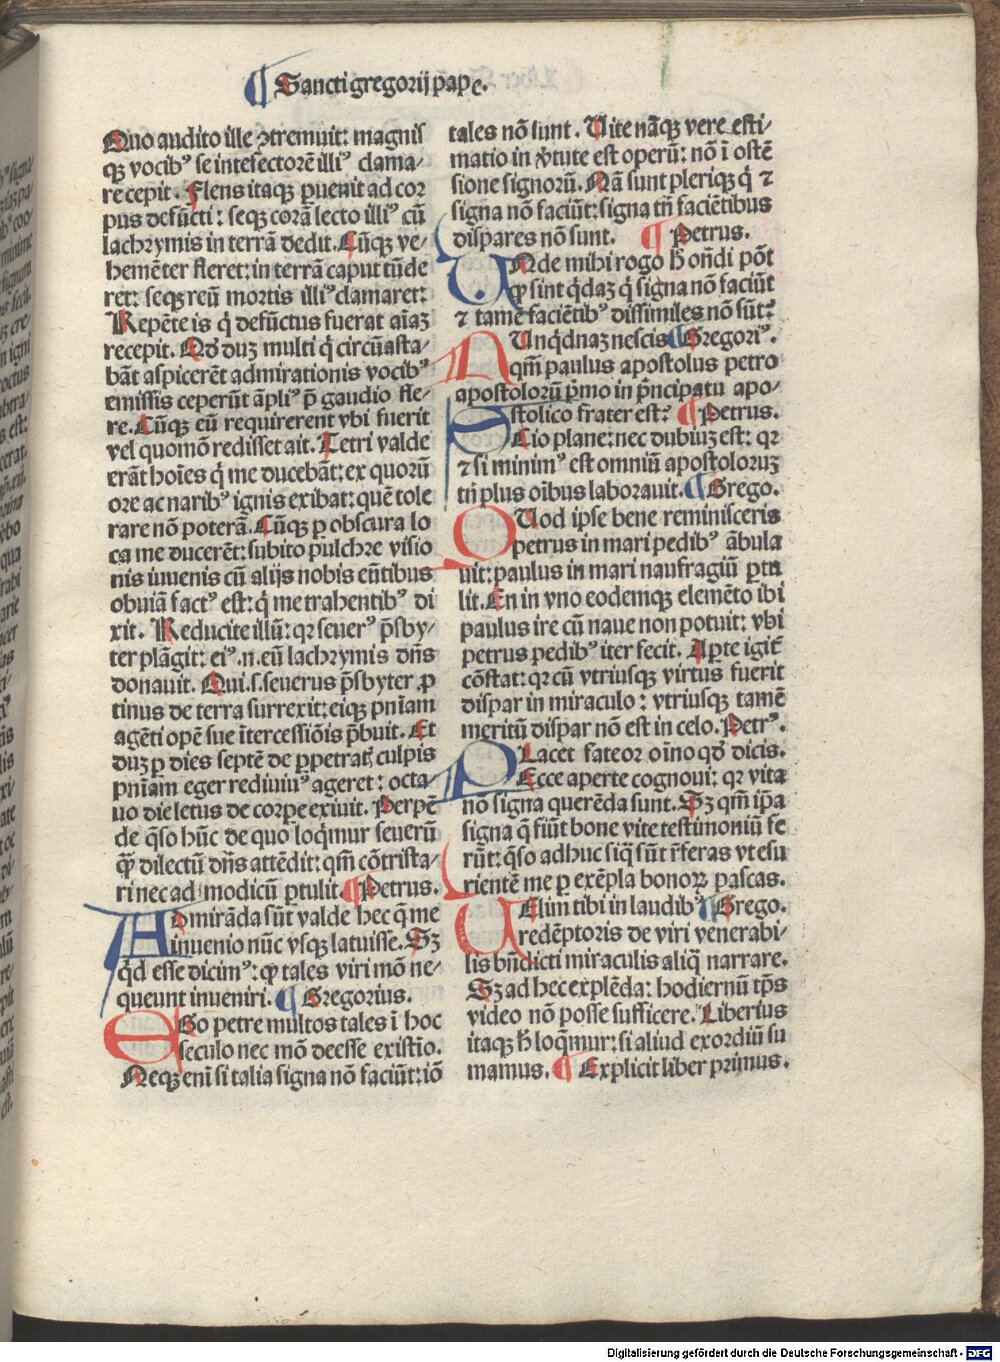 ¶ Sancti gregorij pape.
Quo audito ille ꝯtremuit: magnis
qꝫ vocibꝰ se intefectorē illiꝰ clama/
re cepit. Flens itaqꝫ ꝑuenit ad cor
pus defūcti: seqꝫ corā lecto illiꝰ cū
lachrymis in terrā dedit. Cūqꝫ ve/
hemēter fleret: in terrā caput tūde
ret: seqꝫ reū mortis illiꝰ clamaret:
Repēte is q̇ defūctus fuerat aīaꝫ
recepit. Qd́ duꝫ multi q̇ circūasta/
bāt aspicerēt admirationis vocibꝰ
emissis ceperūt āpliꝰ p̄ gaudio fle/
re. Cūqꝫ eū requirerent vbi fuerit
vel quomō redisset ait. Tetri valde
erāt hoīes q̇ me ducebāt: ex quorū
ore ac naribꝰ ignis exibat: quē tole
rare nō poterā. Cūqꝫ ꝑ obscura lo
ca me ducerēt: subito pulchre visio
nis iuuenis cū alijs nobis eūtibus
obuiā factꝰ est: q̇ me trahentibꝰ di
xit. Reducite illū: qꝛ seuerꝰ p̄sby/
ter plāgit: eiꝰ .n. eū lachrymis dn̄s
donauit. Qui .s. seuerus p̄sbyter ꝓ
tinus de terra surrexit: eiqꝫ pn̄iam
agēti opē sue ītercessiōis p̄buit. Et
duꝫ ꝑ dies septē de ꝑpetratꝭ culpis
pn̄iam eger rediuiuꝰ ageret: octa/
uo die letus de corꝑe exiuit. Perpē
de q̄so hūc de quo loq̄mur seuerū
qꝫ̄ dilectū dn̄s attēdit: qm̄ cōtrista/
ri nec ad modicū ꝑtulit. ¶ Petrus.
ADmirāda sūt valde hec q̄ me
inuenio nūc vsqꝫ latuisse. Sꝫ
qd́ esse dicimꝰ: ꝙ tales viri mō ne/
queunt inueniri. ¶ Gregorius.
EGo petre multos tales ī hoc
seculo nec mō deesse existīo.
Neqꝫ enī si talia signa nō faciūt: iō
tales nō sunt. Vite nāqꝫ vere esti/
matio in v̇tute est operū: nō ī ostē
sione signorū. Nā sunt pleriqꝫ q̇ ⁊
signa nō faciūt: signa tn̄ faciētibus
dispares nō sunt. ¶ Petrus.
VNde mihi rogo h̄ ondi pōt
ꝙ sint q̇daꝫ q̇ signa nō faciūt
⁊ tamē faciētibꝰ dissimiles nō sūt?
Vnq̇dnaꝫ nescis ¶ Gregoriꝰ.
Aqm̄ paulus apostolus petro
apostolorū p̄mo in p̄ncipatu apo/
stolico frater est? ¶ Petrus.
SCio plane: nec dubiuꝫ est: qꝛ
⁊ si minimꝰ est omniū apostoloruꝫ
tn̄ plus oībus laborauit. ¶ Grego.
QVod ipse bene reminisceris
petrus in mari pedibꝰ ābula
uit: paulus in mari naufragiū ꝑtu
lit. En in vno eodemqꝫ elemēto ibi
paulus ire cū naue non potuit: vbi
petrus pedibꝰ iter fecit. Aꝑte igit̄
cōstat: qꝛ cū vtriusqꝫ virtus fuerit
dispar in miraculo: vtriusqꝫ tamē
meritū dispar nō est in celo. Petrꝰ.
PLacet fateor oīno qd́ dicis.
Ecce aperte cognoui: qꝛ vita
nō signa querēda sunt. Sꝫ qm̄ ip̄a
signa q̄ fiūt bone vite testimoniū fe
rūt: q̄so adhuc siq̄ sūt r̄feras vt esu
rientē me ꝑ exēpla bonoꝝ pascas.
VElim tibi in laudibꝰ ¶ Grego.
redēptoris de viri venerabi/
lis bn̄dicti miraculis aliq̄ narrare.
Sꝫ ad hec explēda: hodiernū tp̄s
video nō posse sufficere. Liberius
itaqꝫ h̄ loq̄mur: si aliud exordiū su
mamus. ¶ Explicit liber primus.
Digitalisierung gefördert durch die Deutsche Forschungsgemeinschaft - DFG